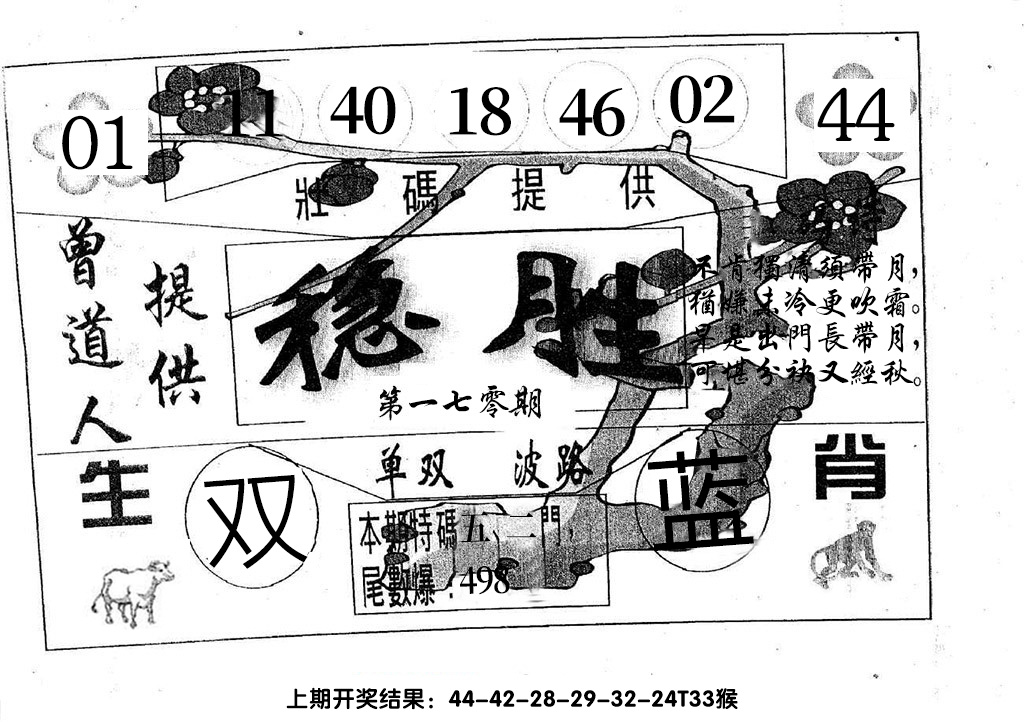 01 11 40 18 46 02 44
壯碼提供
特
曾道人
提供
稳胜
第一七零期
不肯獨清須帶月，
猶嫌太冷更吹霜。
果是出門長帶月，
可堪分袂又經秋。
生肖
单双 波路
双
蓝
本期特碼五、二門，
尾數爆：498
上期开奖结果：44-42-28-29-32-24T33猴